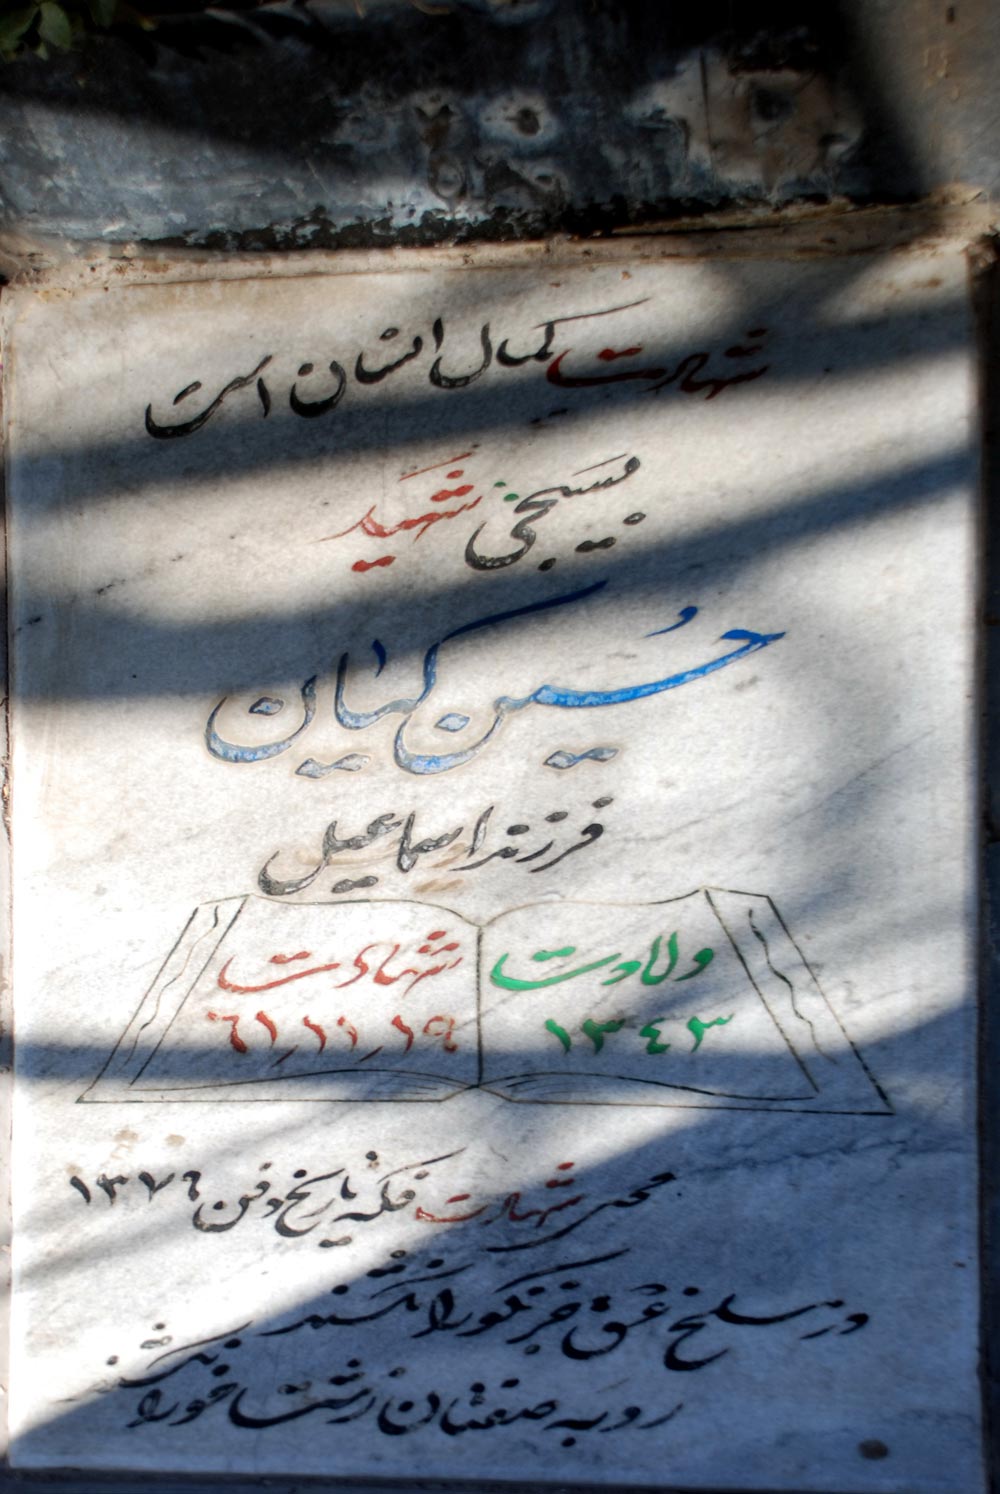 شهادت کمال انسان است
بسیجی شهید
حسین کیان
فرزند اسماعیل
ولادت شهادت
۱۳٤۳ ٦۱٫۱۱٫۱۹
محل شهادت فکه تاریخ دفن ۱۳۷٦
در مسلخ عشق جز نکو را نکشند
روبه صفتان زشت خو را نکشند